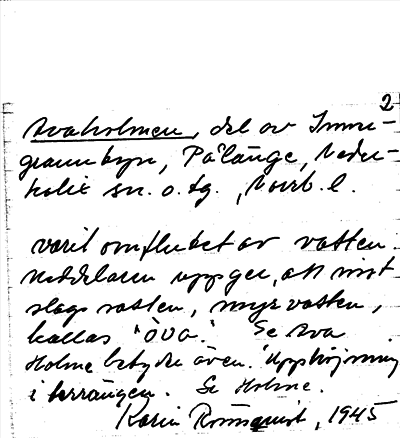 2
Avaholmen, del av Inmu-
grannbyn, Pålänge, Neder-
kalix sn. o. tg., Norrb. l.
varit omflutet av vatten.
Meddelaren uppger, att vist
slags vatten, myrvatten,
kallas "ava". Se Ava
Holme betyder även. Upphöjning
i terrängen. Se Holme.
Karin Rönnquist, 1945